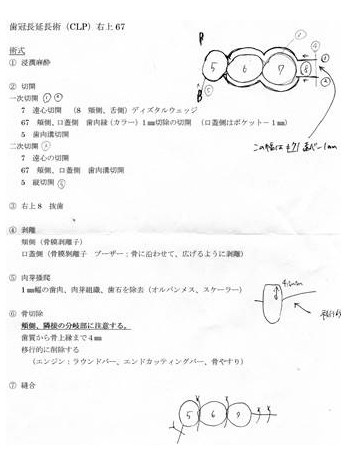 歯冠長延長術（CLP）右上 67
術式
① 浸潤麻酔
② 切開
一次切開 ① ②
7 遠心切開 （8 頬側、舌側）ディスタルウェッジ
67 頬側、口蓋側 歯肉縁（カラー）1㎜切除の切開 （口蓋側はポケット－1㎜）
5 歯肉溝切開
二次切開
7 遠心の切開
67 頬側、口蓋側 歯肉溝切開
5 縦切開
③ 右上8 抜歯
④ 剥離
頬側（骨膜剥離子）
口蓋側（骨膜剥離子 ブーザー：骨に沿わせて、広げるように剥離）
⑤ 肉芽掻爬
1㎜幅の歯肉、肉芽組織、歯石を除去（オルバンメス、スケーラー）
⑥ 骨切除
頬側、隣接の分岐部に注意する。
歯質から骨上縁まで4㎜
移行的に削除する
（エンジン：ラウンドバー、エンドカッティングバー、骨やすり）
⑦ 縫合
P
5 6 7 8
B
この幅は
4㎜
5 6 7